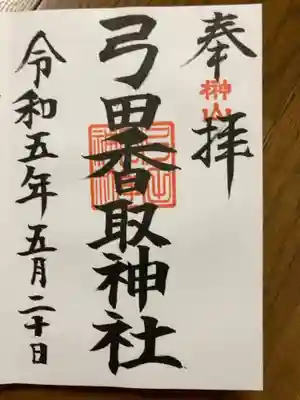 奉拝
榊山
弓田香取神社
令和五年五月二十日